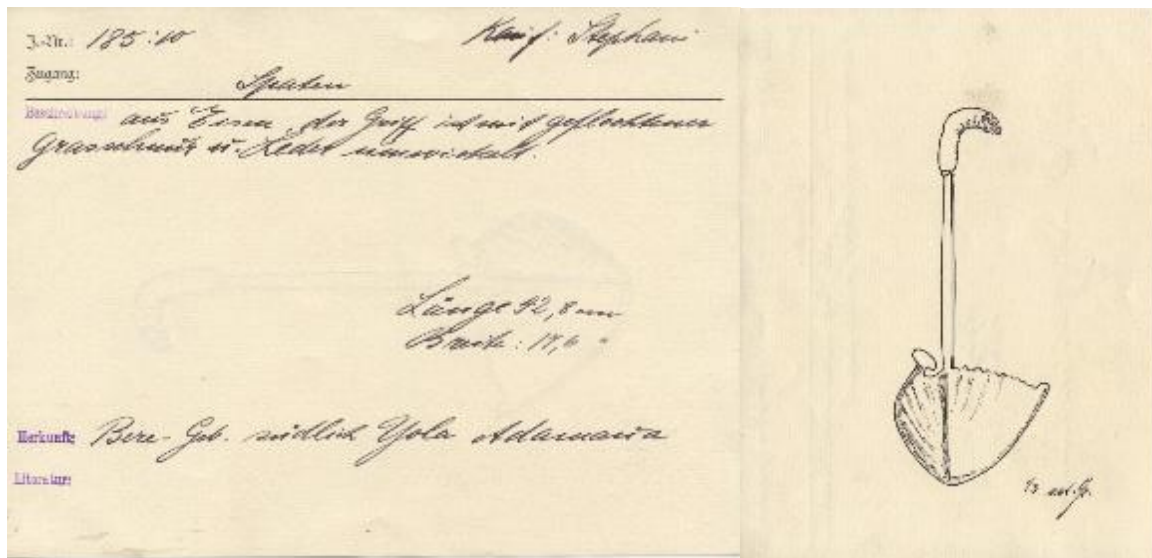 J.-Nr.: 185:10 Kauf: Stephani
Zugang:
Spaten
Beschreibung: aus Eisen der Griff ist mit geflochtener
Grasschnur u. Leder umwickelt.
Länge 42,8 cm
Breite: 17,6 "
Herkunft: Bere-Geb. südlich Yola Adamaua
Literatur:
1/3 nat. Gr.